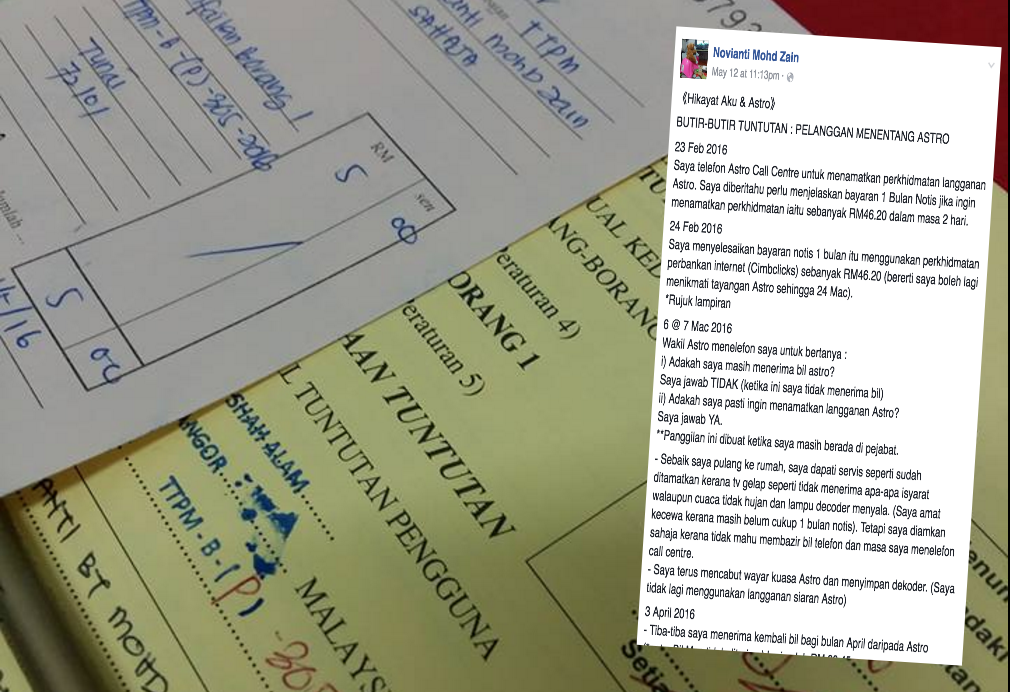 Novianti Mohd Zain
May 12 at 11:13pm
《Hikayat Aku & Astro》
BUTIR-BUTIR TUNTUTAN : PELANGGAN MENENTANG ASTRO
23 Feb 2016
Saya telefon Astro Call Centre untuk menamatkan perkhidmatan langganan
Astro. Saya diberitahu perlu menjelaskan bayaran 1 Bulan Notis jika ingin
menamatkan perkhidmatan iaitu sebanyak RM46.20 dalam masa 2 hari.
24 Feb 2016
Saya menyelesaikan bayaran notis 1 bulan itu menggunakan perkhidmatan
perbankan internet (Cimbclicks) sebanyak RM46.20 (bererti saya boleh lagi
menikmati tayangan Astro sehingga 24 Mac).
*Rujuk lampiran
6 @ 7 Mac 2016
Wakil Astro menelefon saya untuk bertanya :
i) Adakah saya masih menerima bil astro?
Saya jawab TIDAK (ketika ini saya tidak menerima bil)
ii) Adakah saya pasti ingin menamatkan langganan Astro?
Saya jawab YA.
**Panggilan ini dibuat ketika saya masih berada di pejabat.
- Sebaik saya pulang ke rumah, saya dapati servis seperti sudah
ditamatkan kerana tv gelap seperti tidak menerima apa-apa isyarat
walaupun cuaca tidak hujan dan lampu decoder menyala. (Saya amat
kecewa kerana masih belum cukup 1 bulan notis). Tetapi saya diamkan
sahaja kerana tidak mahu membazir bil telefon dan masa saya menelefon
call centre.
- Saya terus mencabut wayar kuasa Astro dan menyimpan dekoder. (Saya
tidak lagi menggunakan langganan siaran Astro)
3 April 2016
- Tiba-tiba saya menerima kembali bil bagi bulan April daripada Astro
TTPM
anti mohd zain
SAHAJA
faikan Borang 1
TTPM-B-(P)-305-2016
Tunai
73101
RM
sen
5
00
Jumlah ...
5
00
/16
ORANG 1
eraturan 4)
eraturan 5)
AAN TUNTUTAN
L TUNTUTAN PENGGUNA
MALAYS
SHAH ALAM
NGOR
TTPM-B-(P)
-30
ANTI BT MOHD
UAL KE
NG-BORANG